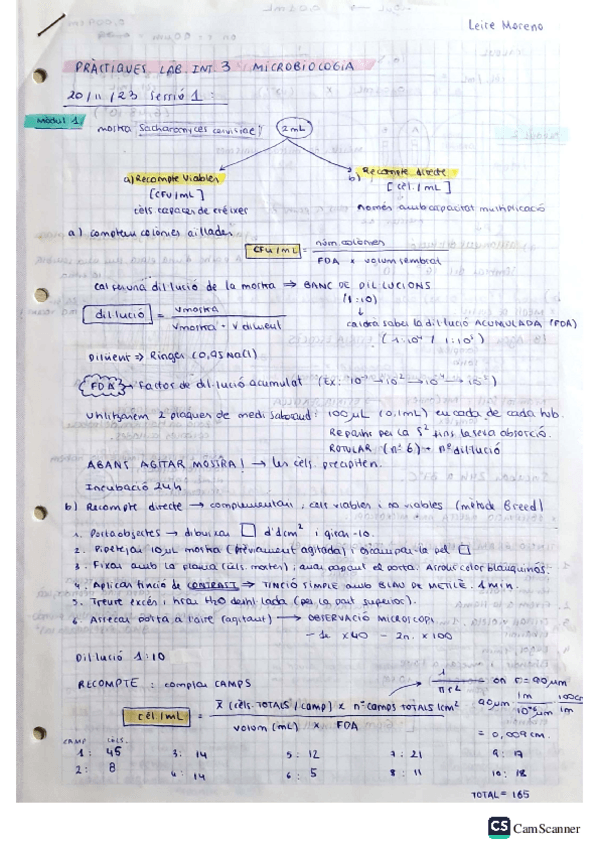 Leire Moreno
PRÀCTIQUES LAB. INT. 3 MICROBIOLOGIA
20/11/23 Sessió 1:
Mòdul 1
mostra Sacharomyces cerevisiae 2mL
a) Recompte viables
b) Recompte directe
[CFU/mL]
[cèl./mL]
cèls capaces de créixer
només amb capacitat multiplicació
a) comptem colònies aïllades
CFU/mL = núm colònies / FDA x volum sembrat
Cal fer una dil·lució de la mostra ⇒ BANC DE DIL·LUCIONS
(1:10)
dil·lució = Vmostra / Vmostra + Vdiluent
caldrà saber la dil·lució ACUMULADA (FDA)
Diluent ⇒ Ringer (0,95 NaCl)
FDA → Factos de dil·lució acumulat
Utilitzarem 2 plaques de medi Sabouraud: 100 µL (0,1mL) en cada de cada tub.
Repartir per la fins la seva absorció.
ROTULAR (nº 6) + nº dil·lució
ABANS AGITAR MOSTRA! → les cèls. precipiten.
Incubació 24h
b) Recompte directe → complementari, cels viables i no viables (mètode Breed)
1. Portaobjectes → dibuixar □ d'1cm² i girar-lo.
2. Pipetejar 10µL mostra (prèviament agitada) i escampar-la pel □
3. Fixar amb la planxa (cèls. moren), anar tapant el porta. Arròs color blanquinós.
4. Aplicar tinció de CONTRAST ⇒ TINCIÓ SIMPLE amb BLAU DE METILÈ. 1 min.
5. Treure excés i H2O destil·lada (per la part superior).
6. Assecar porta a l'aire (agitant) → OBSERVACIÓ MICROSCOPI
- 1r x40 - 2n. x100
Dil·lució 1:10
RECOMPTE: comptar CAMPS
1 / πr² on r = 90µm
cèl./mL = x̄ (cèls. TOTALS / camp) x nº camps TOTALS 1cm² / volum (mL) x FDA
90µm
= 0,009cm.
CAMP CÈLS.
1: 45 3: 14 5: 12 7: 21 9: 17
2: 8 4: 14 6: 5 8: 11 10: 18
TOTAL = 165
CS CamScanner